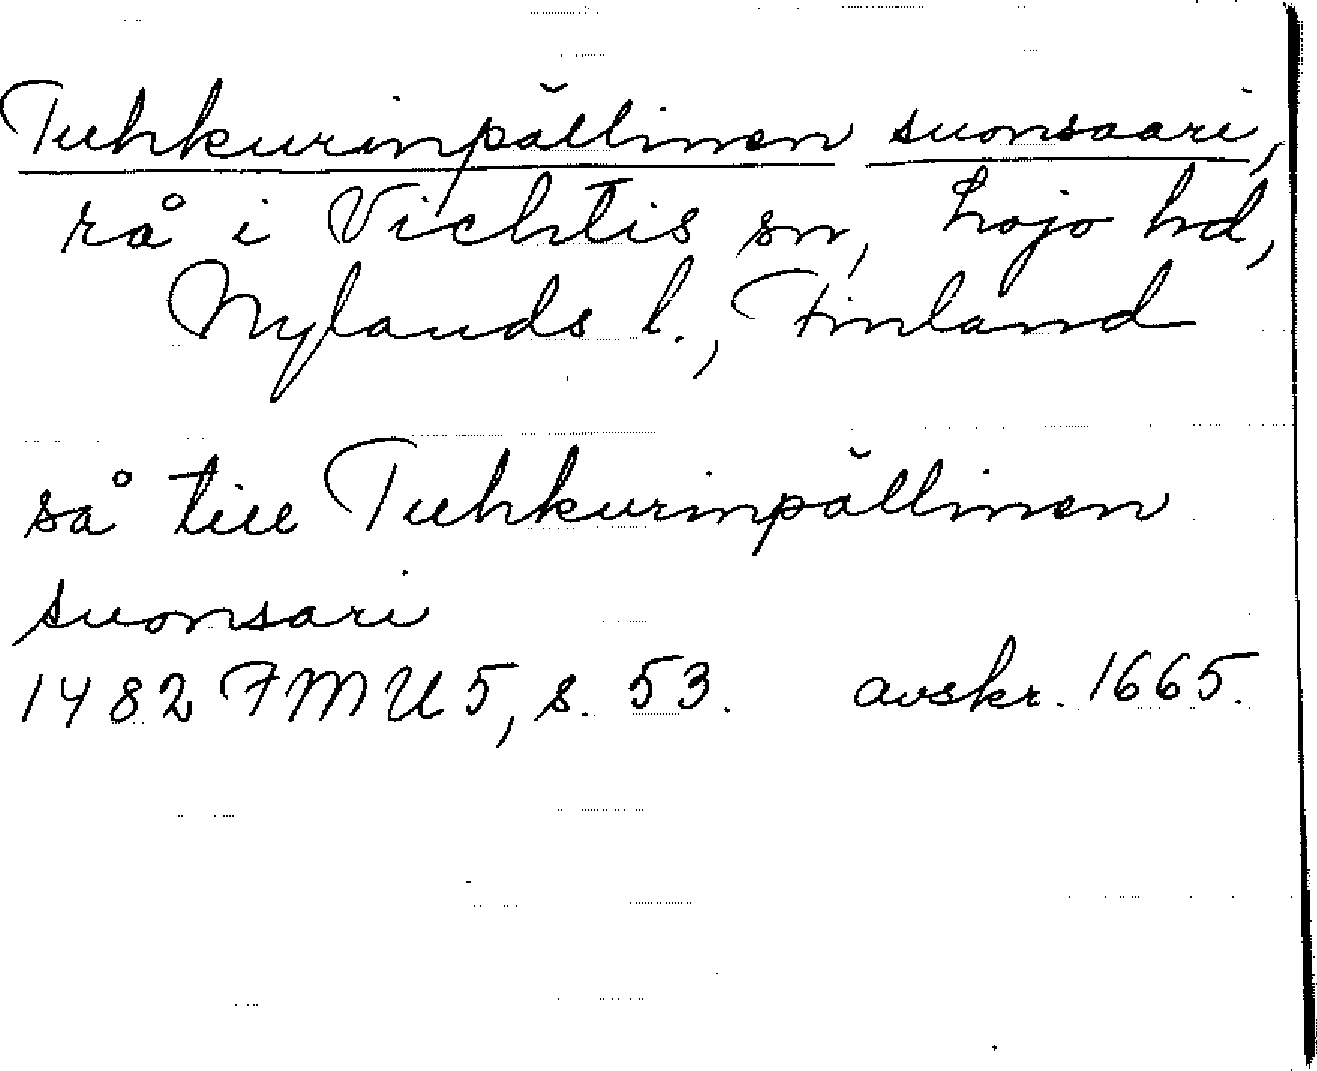 Tuhkurinpällinen suonsaari,
rå i Vichtis sn, Lojo hd,
Nylands l., Finland
så till Tuhkurinpällinen
suonsari
1482 FMU 5, s. 53. avskr. 1665.